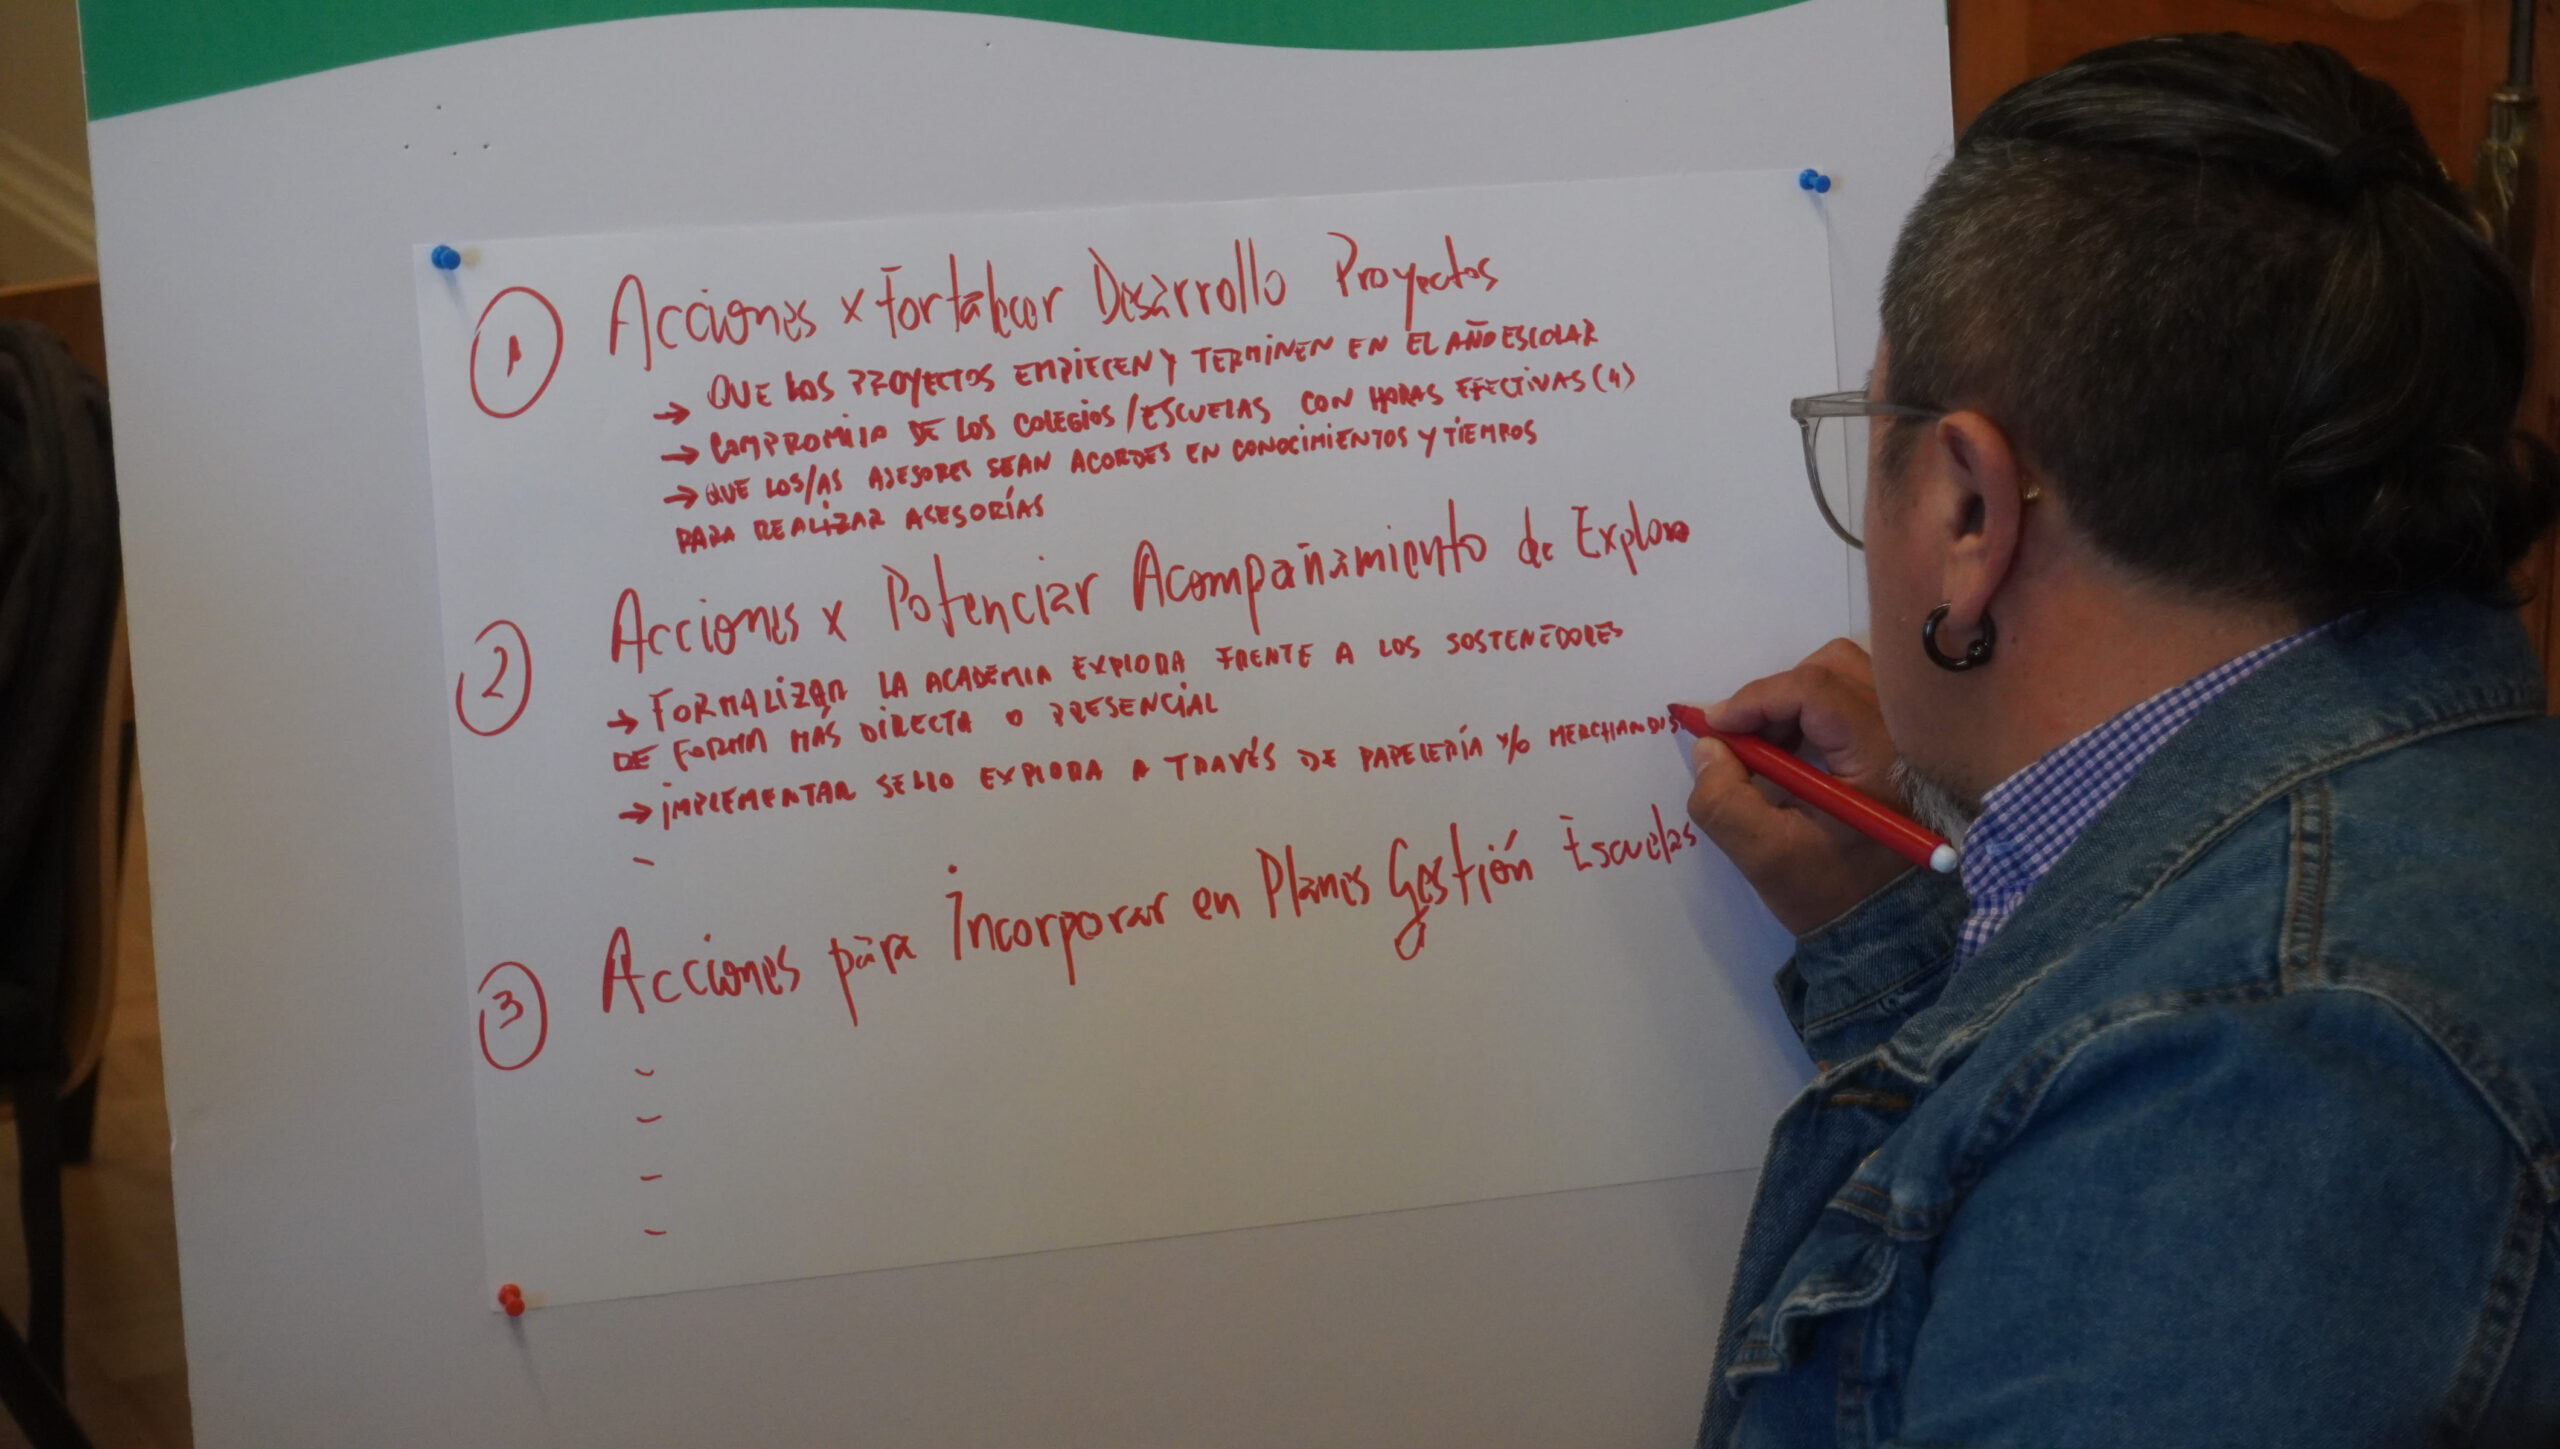 1 Acciones x Fortalecer Desarrollo Proyectos
→ QUE LOS PROYECTOS EMPIECEN Y TERMINEN EN EL AÑO ESCOLAR
→ COMPROMISO DE LOS COLEGIOS/ESCUELAS CON HORAS EFECTIVAS (4)
→ QUE LOS/AS ASESORES SEAN ACORDES EN CONOCIMIENTOS Y TIEMPOS
PARA REALIZAR ASESORÍAS
2 Acciones x Potenciar Acompañamiento de Explora
→ FORMALIZAR LA ACADEMIA EXPLORA FRENTE A LOS SOSTENEDORES
DE FORMA MÁS DIRECTA O PRESENCIAL
→ IMPLEMENTAR SELLO EXPLORA A TRAVÉS DE PAPELERÍA Y/O MERCHANDIS
-
3 Acciones para Incorporar en Planes Gestión Escuelas
-
-
-
-